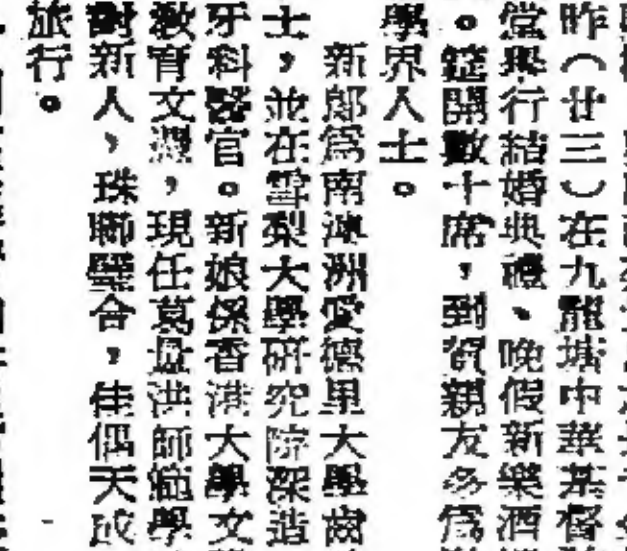 昨（廿三）在九龍塘中華基督
堂舉行結婚典禮、晚假新樂酒
。筵開數十席，到賀親友多為
學界人士。
新郎為南澳洲愛德里大學齒
士，並在雪梨大學研究院深造
牙科醫官。新娘係香港大學文
教育文憑，現任葛量洪師範學
對新人，珠聯璧合，佳偶天成
旅行。